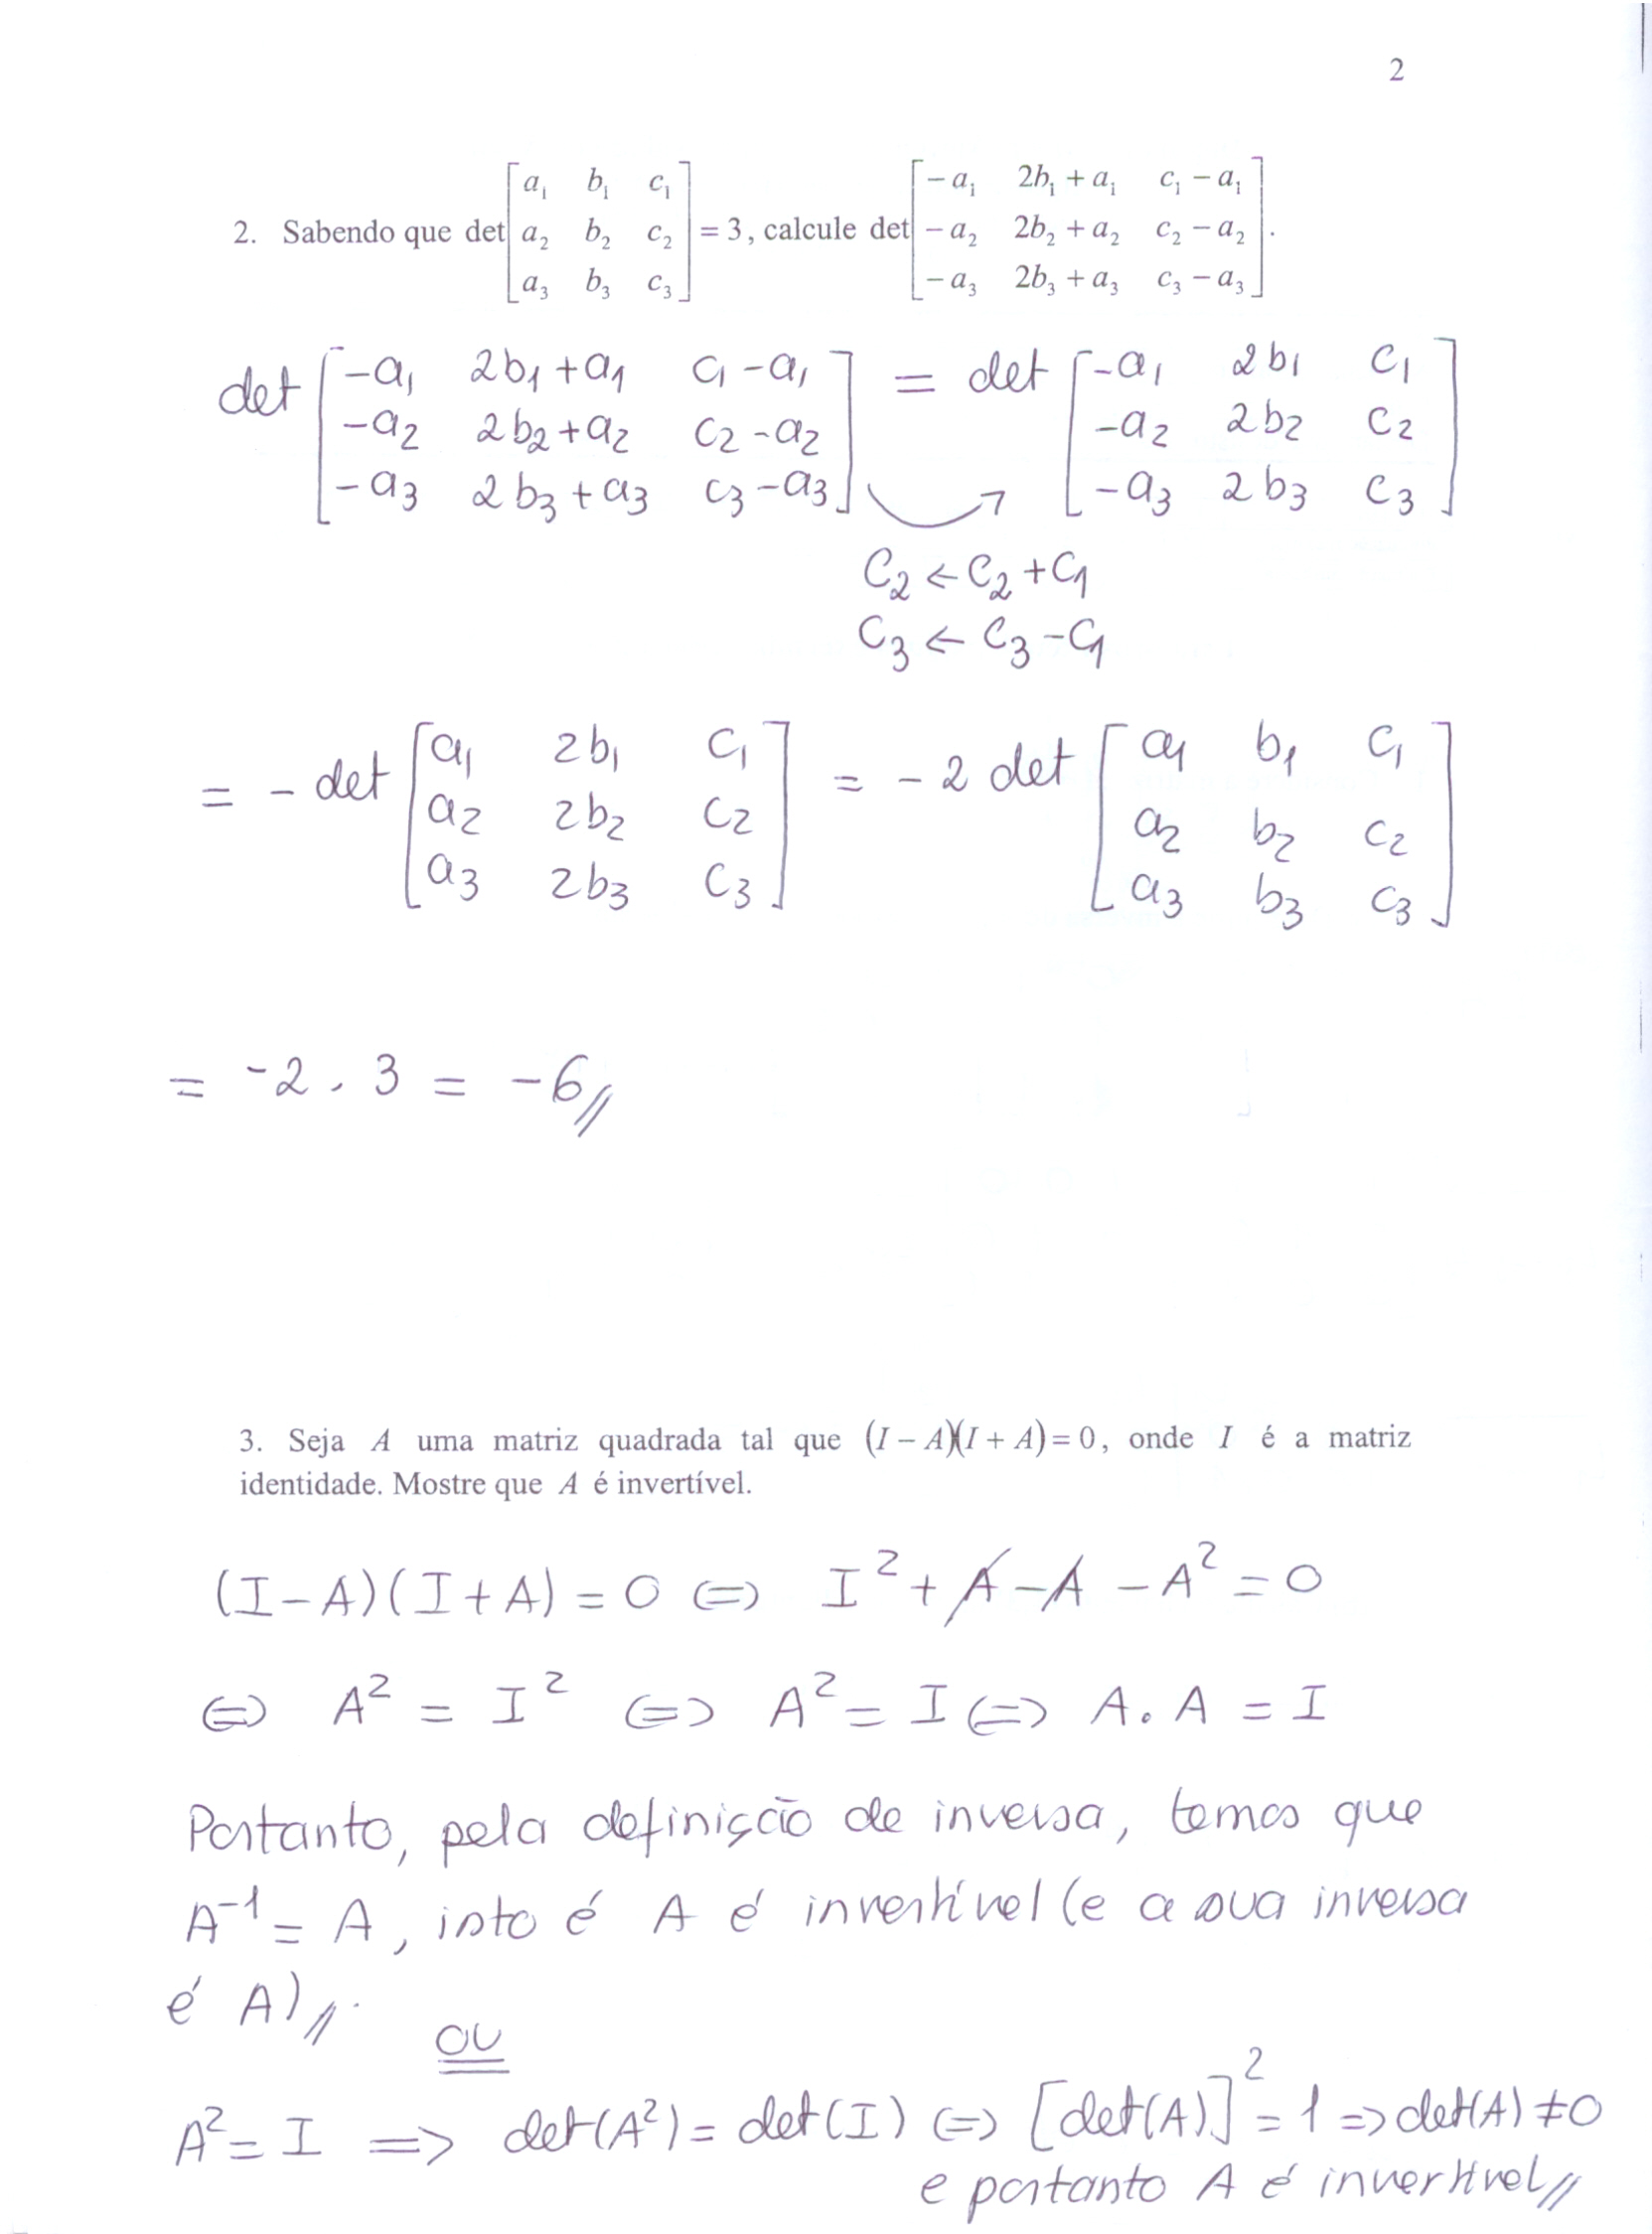 2
2. Sabendo que det [a₁ b₁ c₁; a₂ b₂ c₂; a₃ b₃ c₃] = 3, calcule det [−a₁ 2b₁ + a₁ c₁ − a₁; −a₂ 2b₂ + a₂ c₂ − a₂; −a₃ 2b₃ + a₃ c₃ − a₃].
det [−a₁ 2b₁+a₁ c₁−a₁; −a₂ 2b₂+a₂ c₂−a₂; −a₃ 2b₃+a₃ c₃−a₃] = det [−a₁ 2b₁ c₁; −a₂ 2b₂ c₂; −a₃ 2b₃ c₃]
C₂ ← C₂ + C₁
C₃ ← C₃ − C₁
= − det [a₁ 2b₁ c₁; a₂ 2b₂ c₂; a₃ 2b₃ c₃] = − 2 det [a₁ b₁ c₁; a₂ b₂ c₂; a₃ b₃ c₃]
= −2 . 3 = −6 //
3. Seja A uma matriz quadrada tal que (I − A)(I + A) = 0, onde I é a matriz
identidade. Mostre que A é invertível.
(I−A)(I+A) = 0 ⇔ I² + A − A − A² = 0
⇔ A² = I² ⇔ A² = I ⇔ A . A = I
Portanto, pela definição de inversa, temos que
A⁻¹ = A, isto é A é invertível (e a sua inversa
é A) //.
OU
A² = I ⇒ det(A²) = det(I) ⇔ [det(A)]² = 1 ⇒ det(A) ≠ 0
e portanto A é invertível //